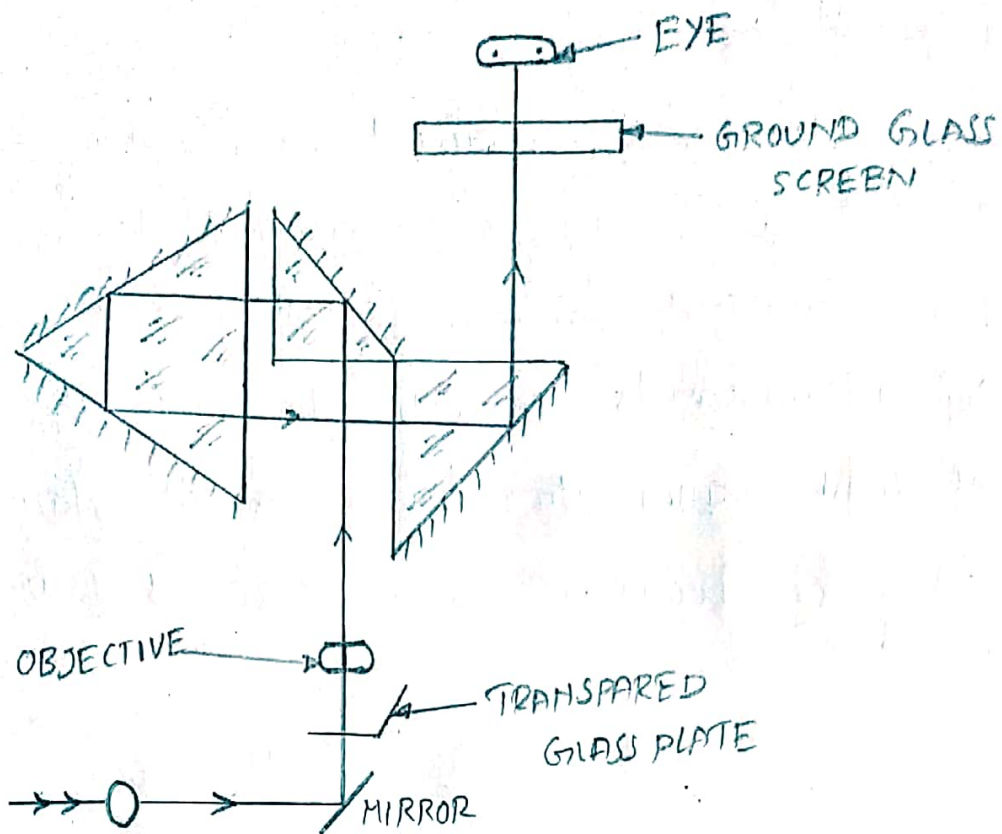 EYE
GROUND GLASS
SCREEN
OBJECTIVE
TRANSPARED
GLASS PLATE
MIRROR